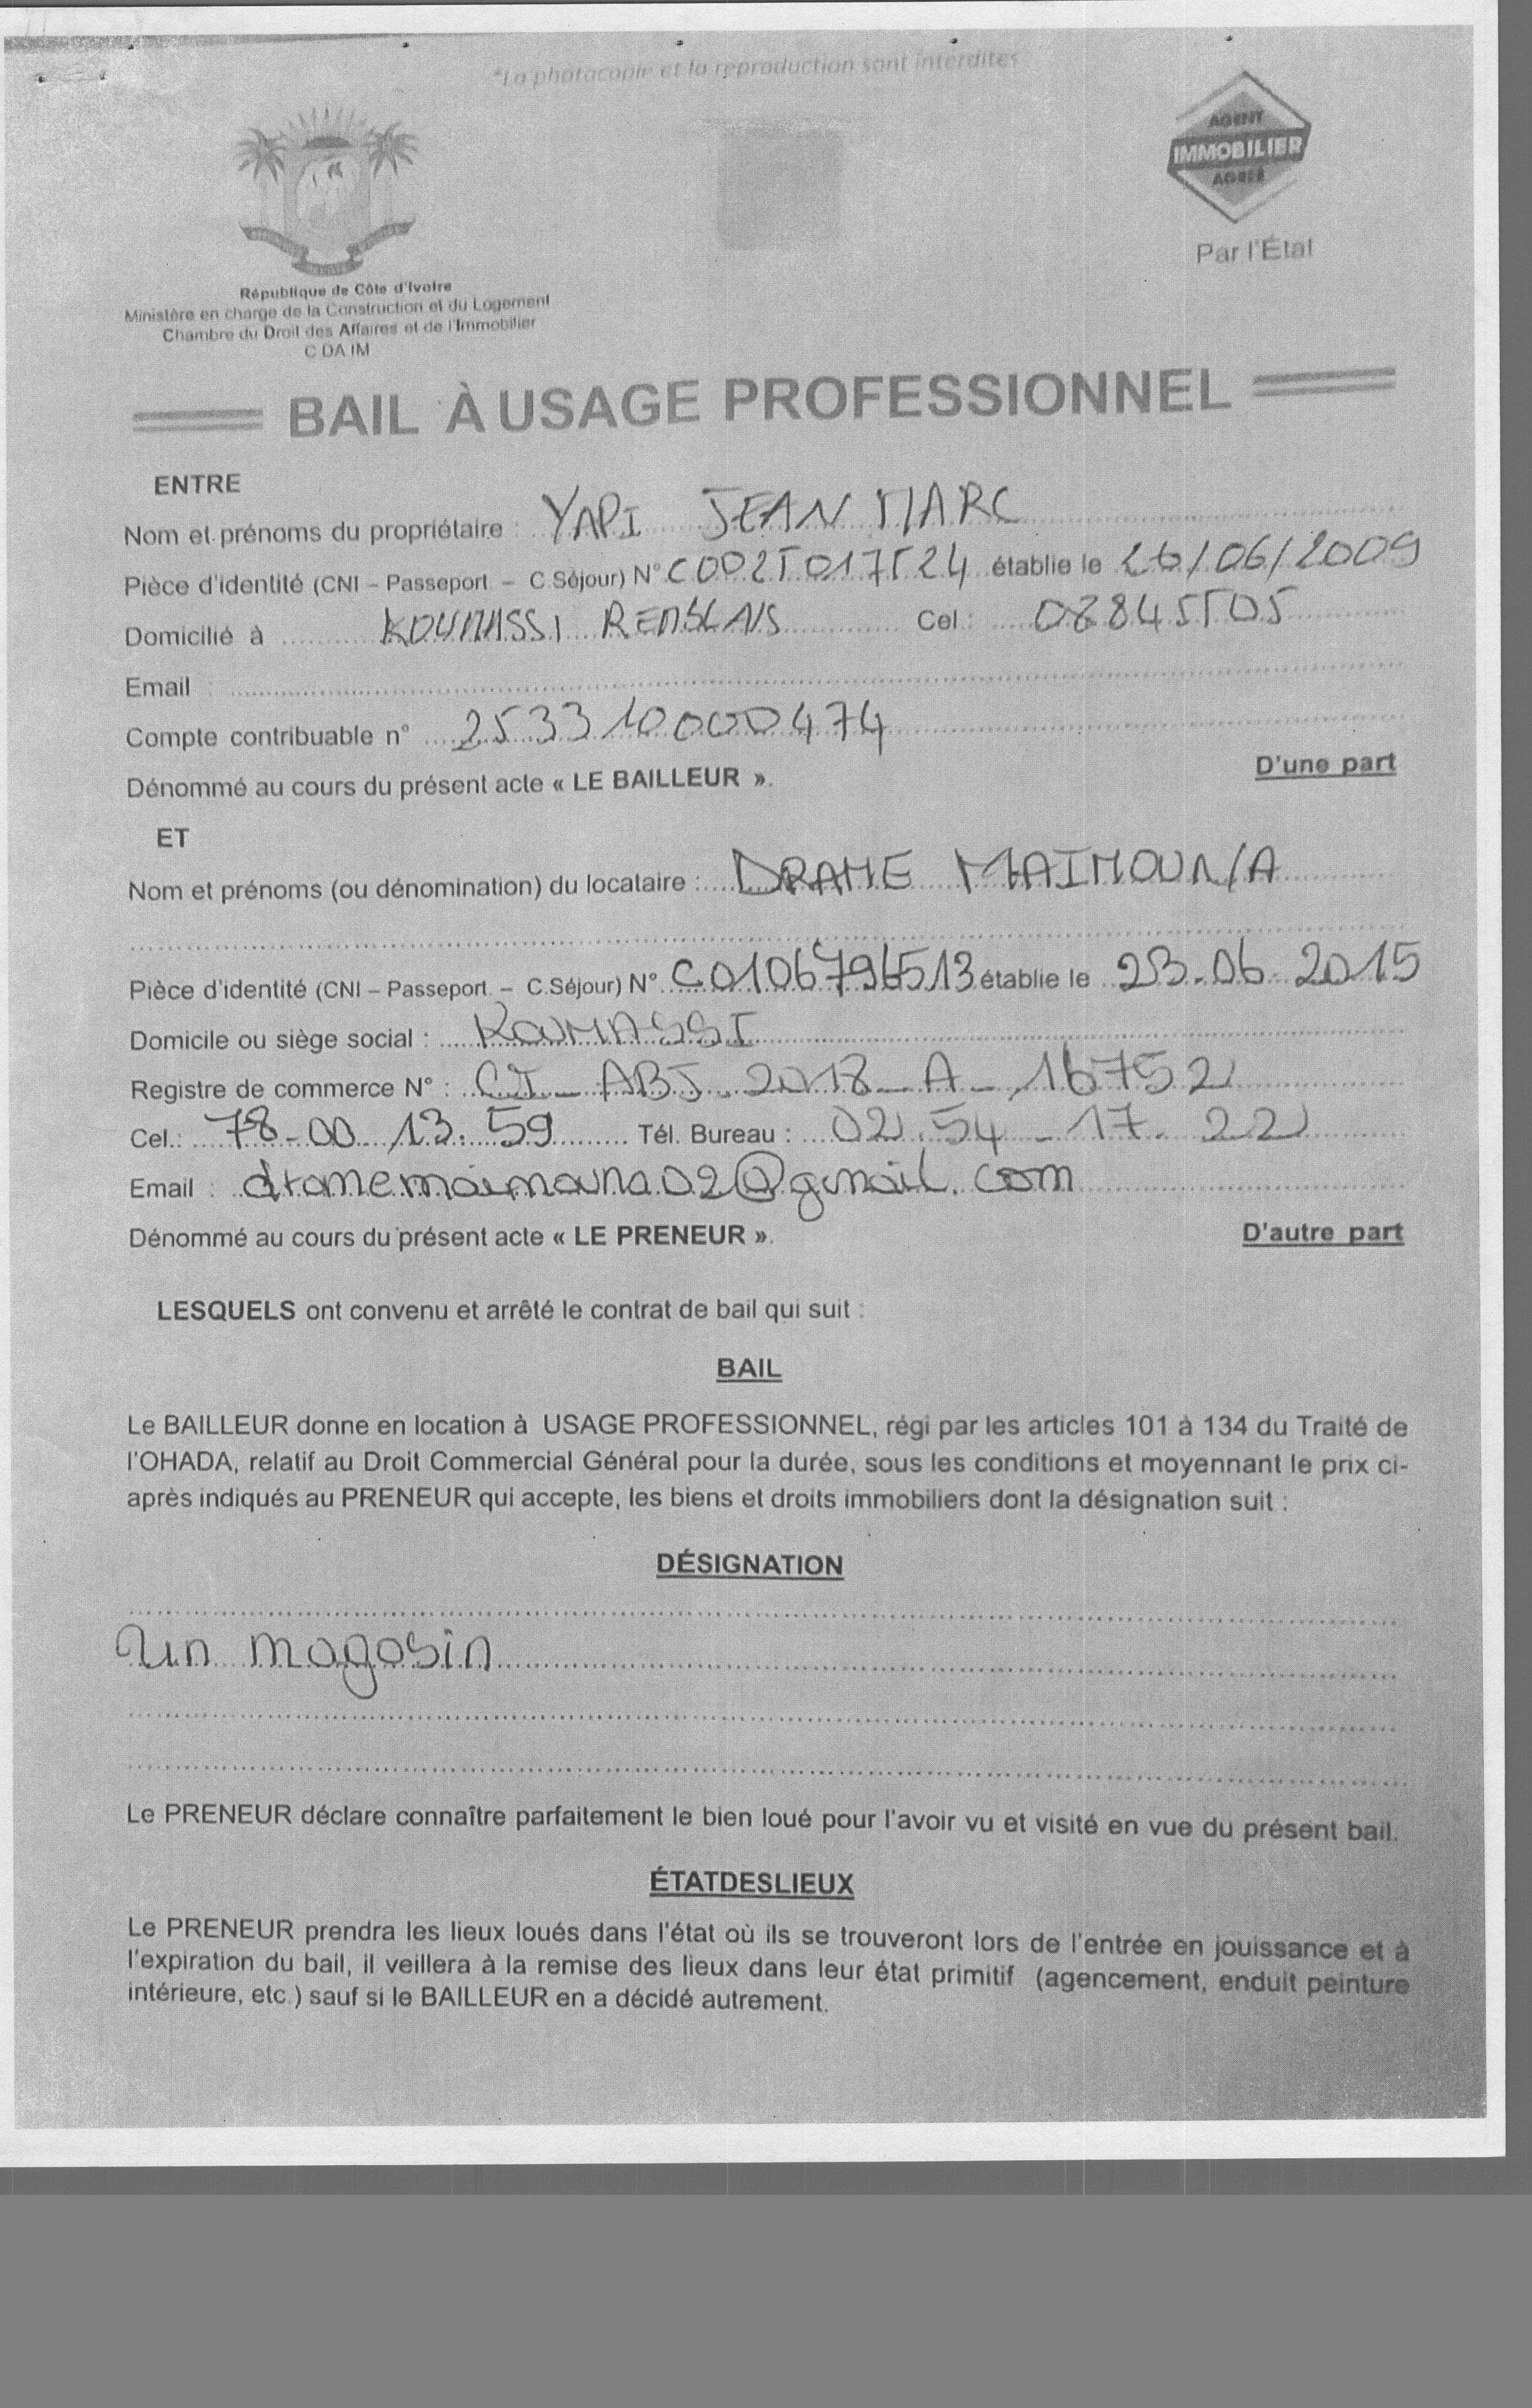 *La photocopie et la reproduction sont interdites
AGENT
IMMOBILIER
AGRÉÉ
Par l'État
République de Côte d'Ivoire
Ministère en charge de la Construction et du Logement
Chambre du Droit des Affaires et de l'Immobilier
C.DA.IM
BAIL À USAGE PROFESSIONNEL
ENTRE
Nom et prénoms du propriétaire : YAPI JEAN MARC
Pièce d'identité (CNI – Passeport. – C.Séjour) N° C0025017524 établie le 26/06/2009
Domicilié à KOUMASSI REMBLAIS Cel.: 08845505
Email :
Compte contribuable n° 253310000474
Dénommé au cours du présent acte « LE BAILLEUR ». D'une part
ET
Nom et prénoms (ou dénomination) du locataire : DRAME MAIMOUNA
Pièce d'identité (CNI – Passeport. – C.Séjour) N° C0106796513 établie le 23-06-2015
Domicile ou siège social : KOUMASSI
Registre de commerce N° : CI-ABJ-2018-A-16752
Cel.: 78-00-13.59 Tél. Bureau : 02.54-17.22
Email : dramemaimouna02@gmail.com
Dénommé au cours du présent acte « LE PRENEUR ». D'autre part
LESQUELS ont convenu et arrêté le contrat de bail qui suit :
BAIL
Le BAILLEUR donne en location à USAGE PROFESSIONNEL, régi par les articles 101 à 134 du Traité de
l'OHADA, relatif au Droit Commercial Général pour la durée, sous les conditions et moyennant le prix ci-
après indiqués au PRENEUR qui accepte, les biens et droits immobiliers dont la désignation suit :
DÉSIGNATION
Un magasin
Le PRENEUR déclare connaître parfaitement le bien loué pour l'avoir vu et visité en vue du présent bail.
ÉTATDESLIEUX
Le PRENEUR prendra les lieux loués dans l'état où ils se trouveront lors de l'entrée en jouissance et à
l'expiration du bail, il veillera à la remise des lieux dans leur état primitif (agencement, enduit peinture
intérieure, etc.) sauf si le BAILLEUR en a décidé autrement.